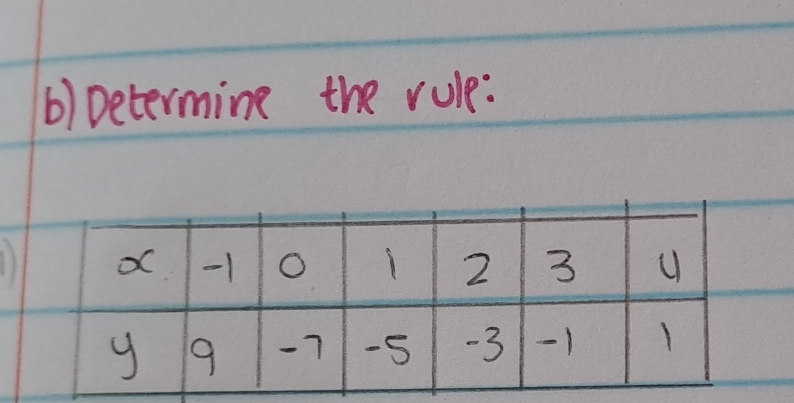 b) Determine the rule:
1)
x -1 0 1 2 3 4
y 9 -7 -5 -3 -1 1